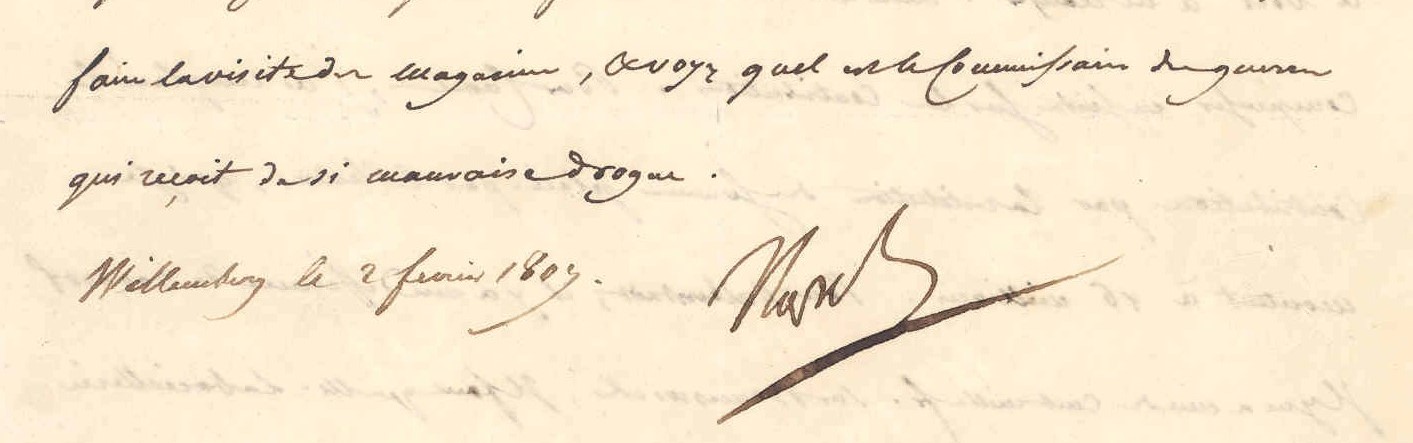 faire la visite des magasins, & voyez quel est le Commissaire des guerres
qui reçoit de si mauvaise drogue.
Willemberg le 2 fevrier 1807.